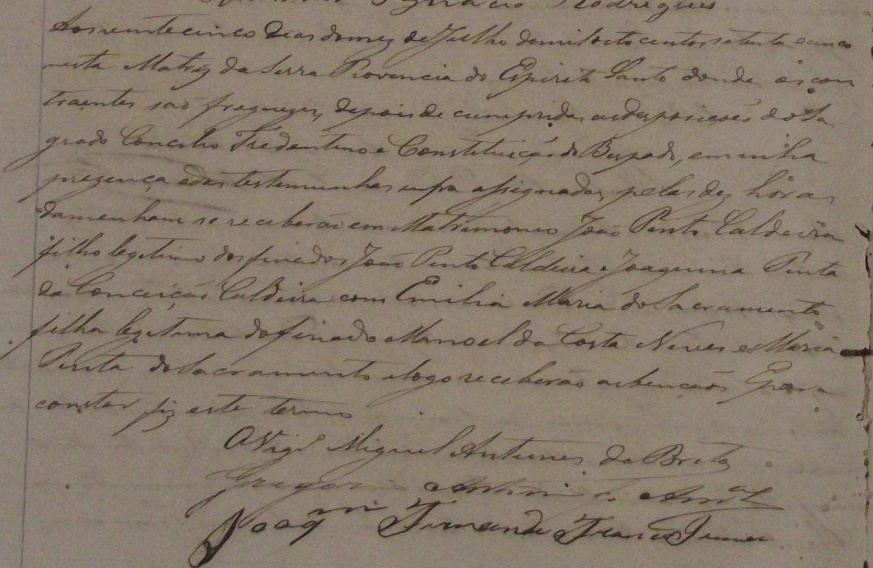 Ignacio Rodrigues
Aos vinte cinco dias do mez de Julho de mil oito centos setenta e cinco
nesta Matriz da Serra Provencia do Espirito Santo donde os con
traentes saõ freguezes, depois de cumpridas as desposicoẽs do Sa
grado Concilio Tredentino e Constituiçaõ do Bispado, em minha
prezença e das testemunhas infra assignadas, pelas dez horas
da menham se receberaõ em Matrimonio Joaõ Pinto Caldeira
filho legitimo dos finados Joaõ Pinto Caldeira e Joaquina Pinta
da Conceiçaõ Caldeira com Emilia Maria do Sacramento
filha legitima do finado Manoel da Costa Neves e Maria
Pinta do Sacramento e logo receberaõ as bençaõs. E para
constar fiz este termo
O Vigr.º Miguel Antunes de Brito
Antonio do
Joaqm Fernandes